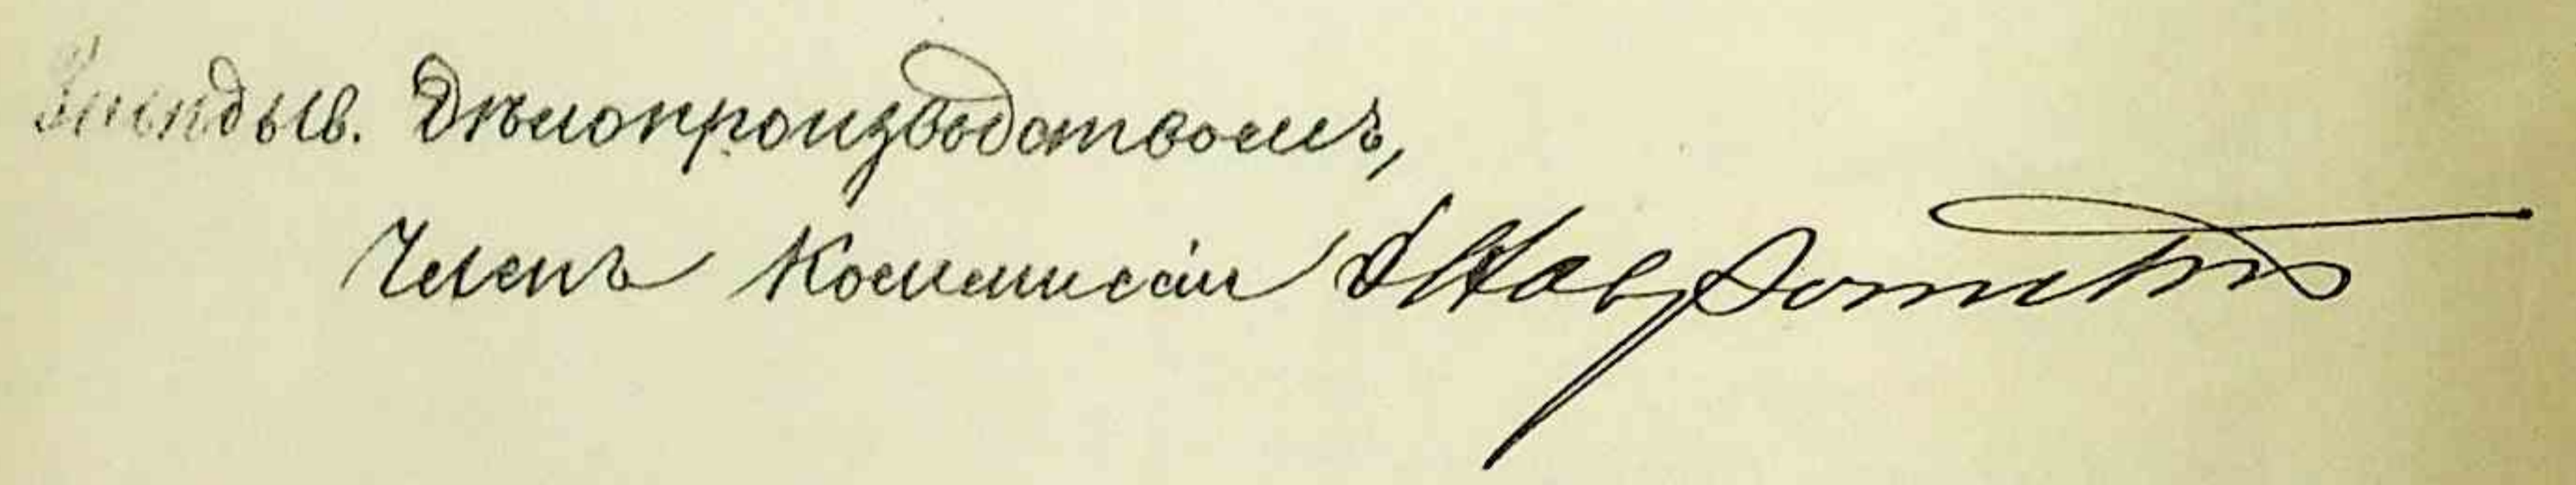 Завѣдыв. Дѣлопроизводствомъ,
Членъ Коммисіи